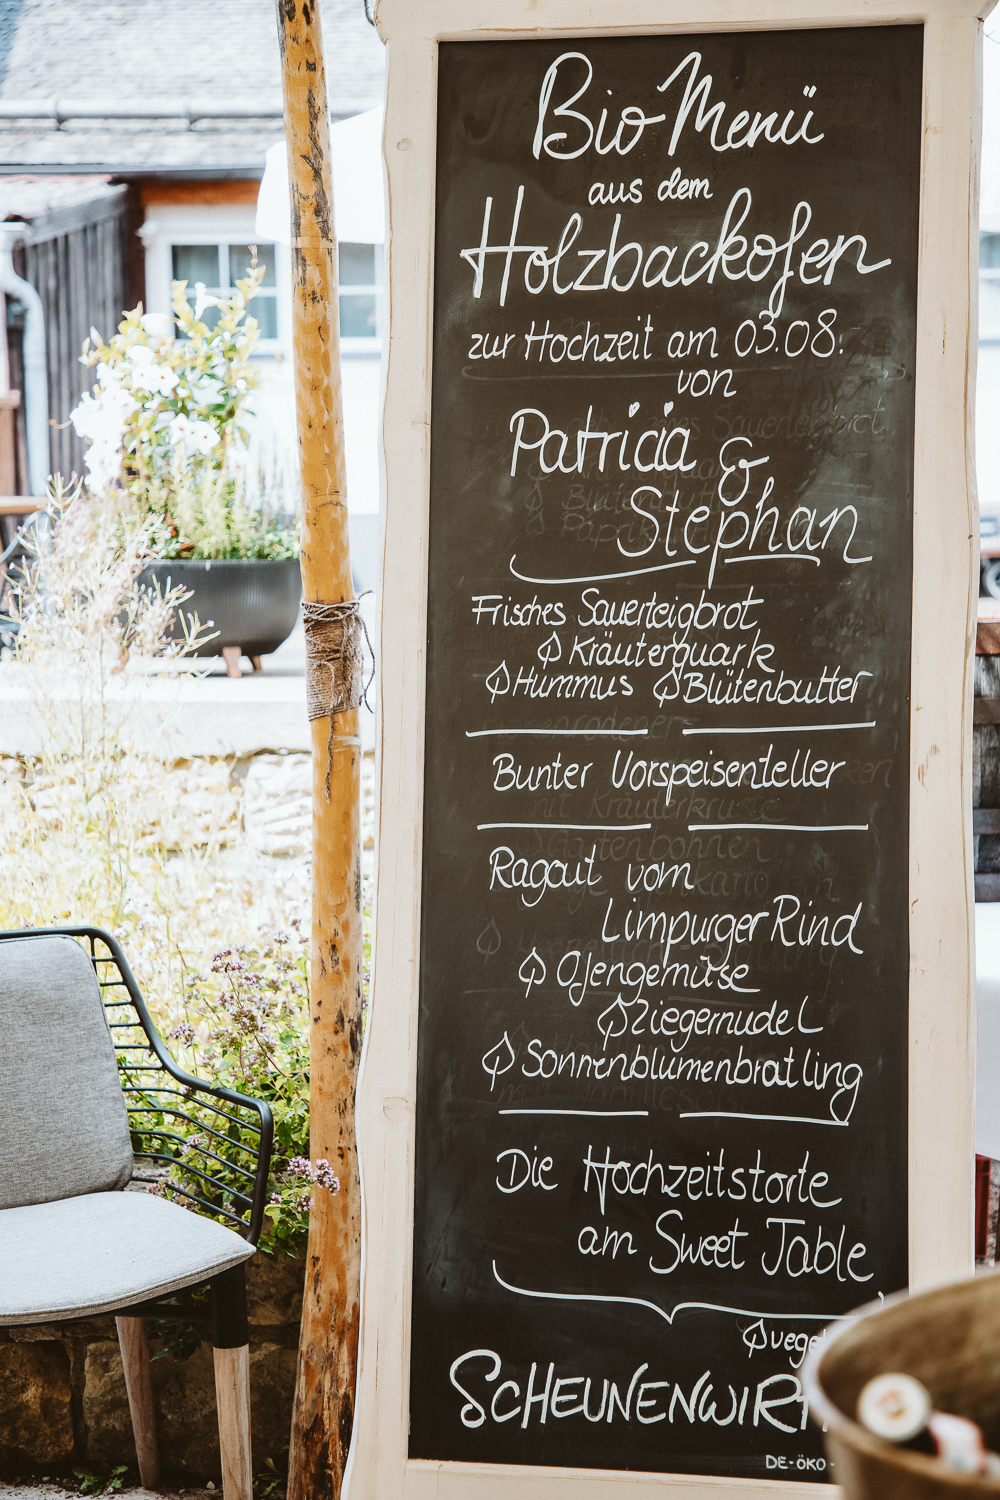 Bio-Menü
aus dem
Holzbackofen
zur Hochzeit am 03.08.
von
Patricia
&
Stephan
Frisches Sauerteigbrot
Kräuterquark
Hummus Blütenbutter
Bunter Vorspeisenteller
Ragout vom
Limpurger Rind
Ofengemüse
Ziegernudel
Sonnenblumenbratling
Die Hochzeitstorte
am Sweet Table
SCHEUNENWIRT
DE-ÖKO-